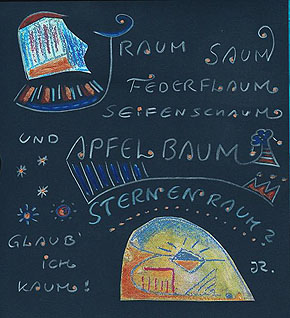 TRAUM SAUM
FEDERFLAUM
SEIFENSCHAUM
UND APFELBAUM
STERNENRAUM?
GLAUB'
ICH
KAUM!
JR.